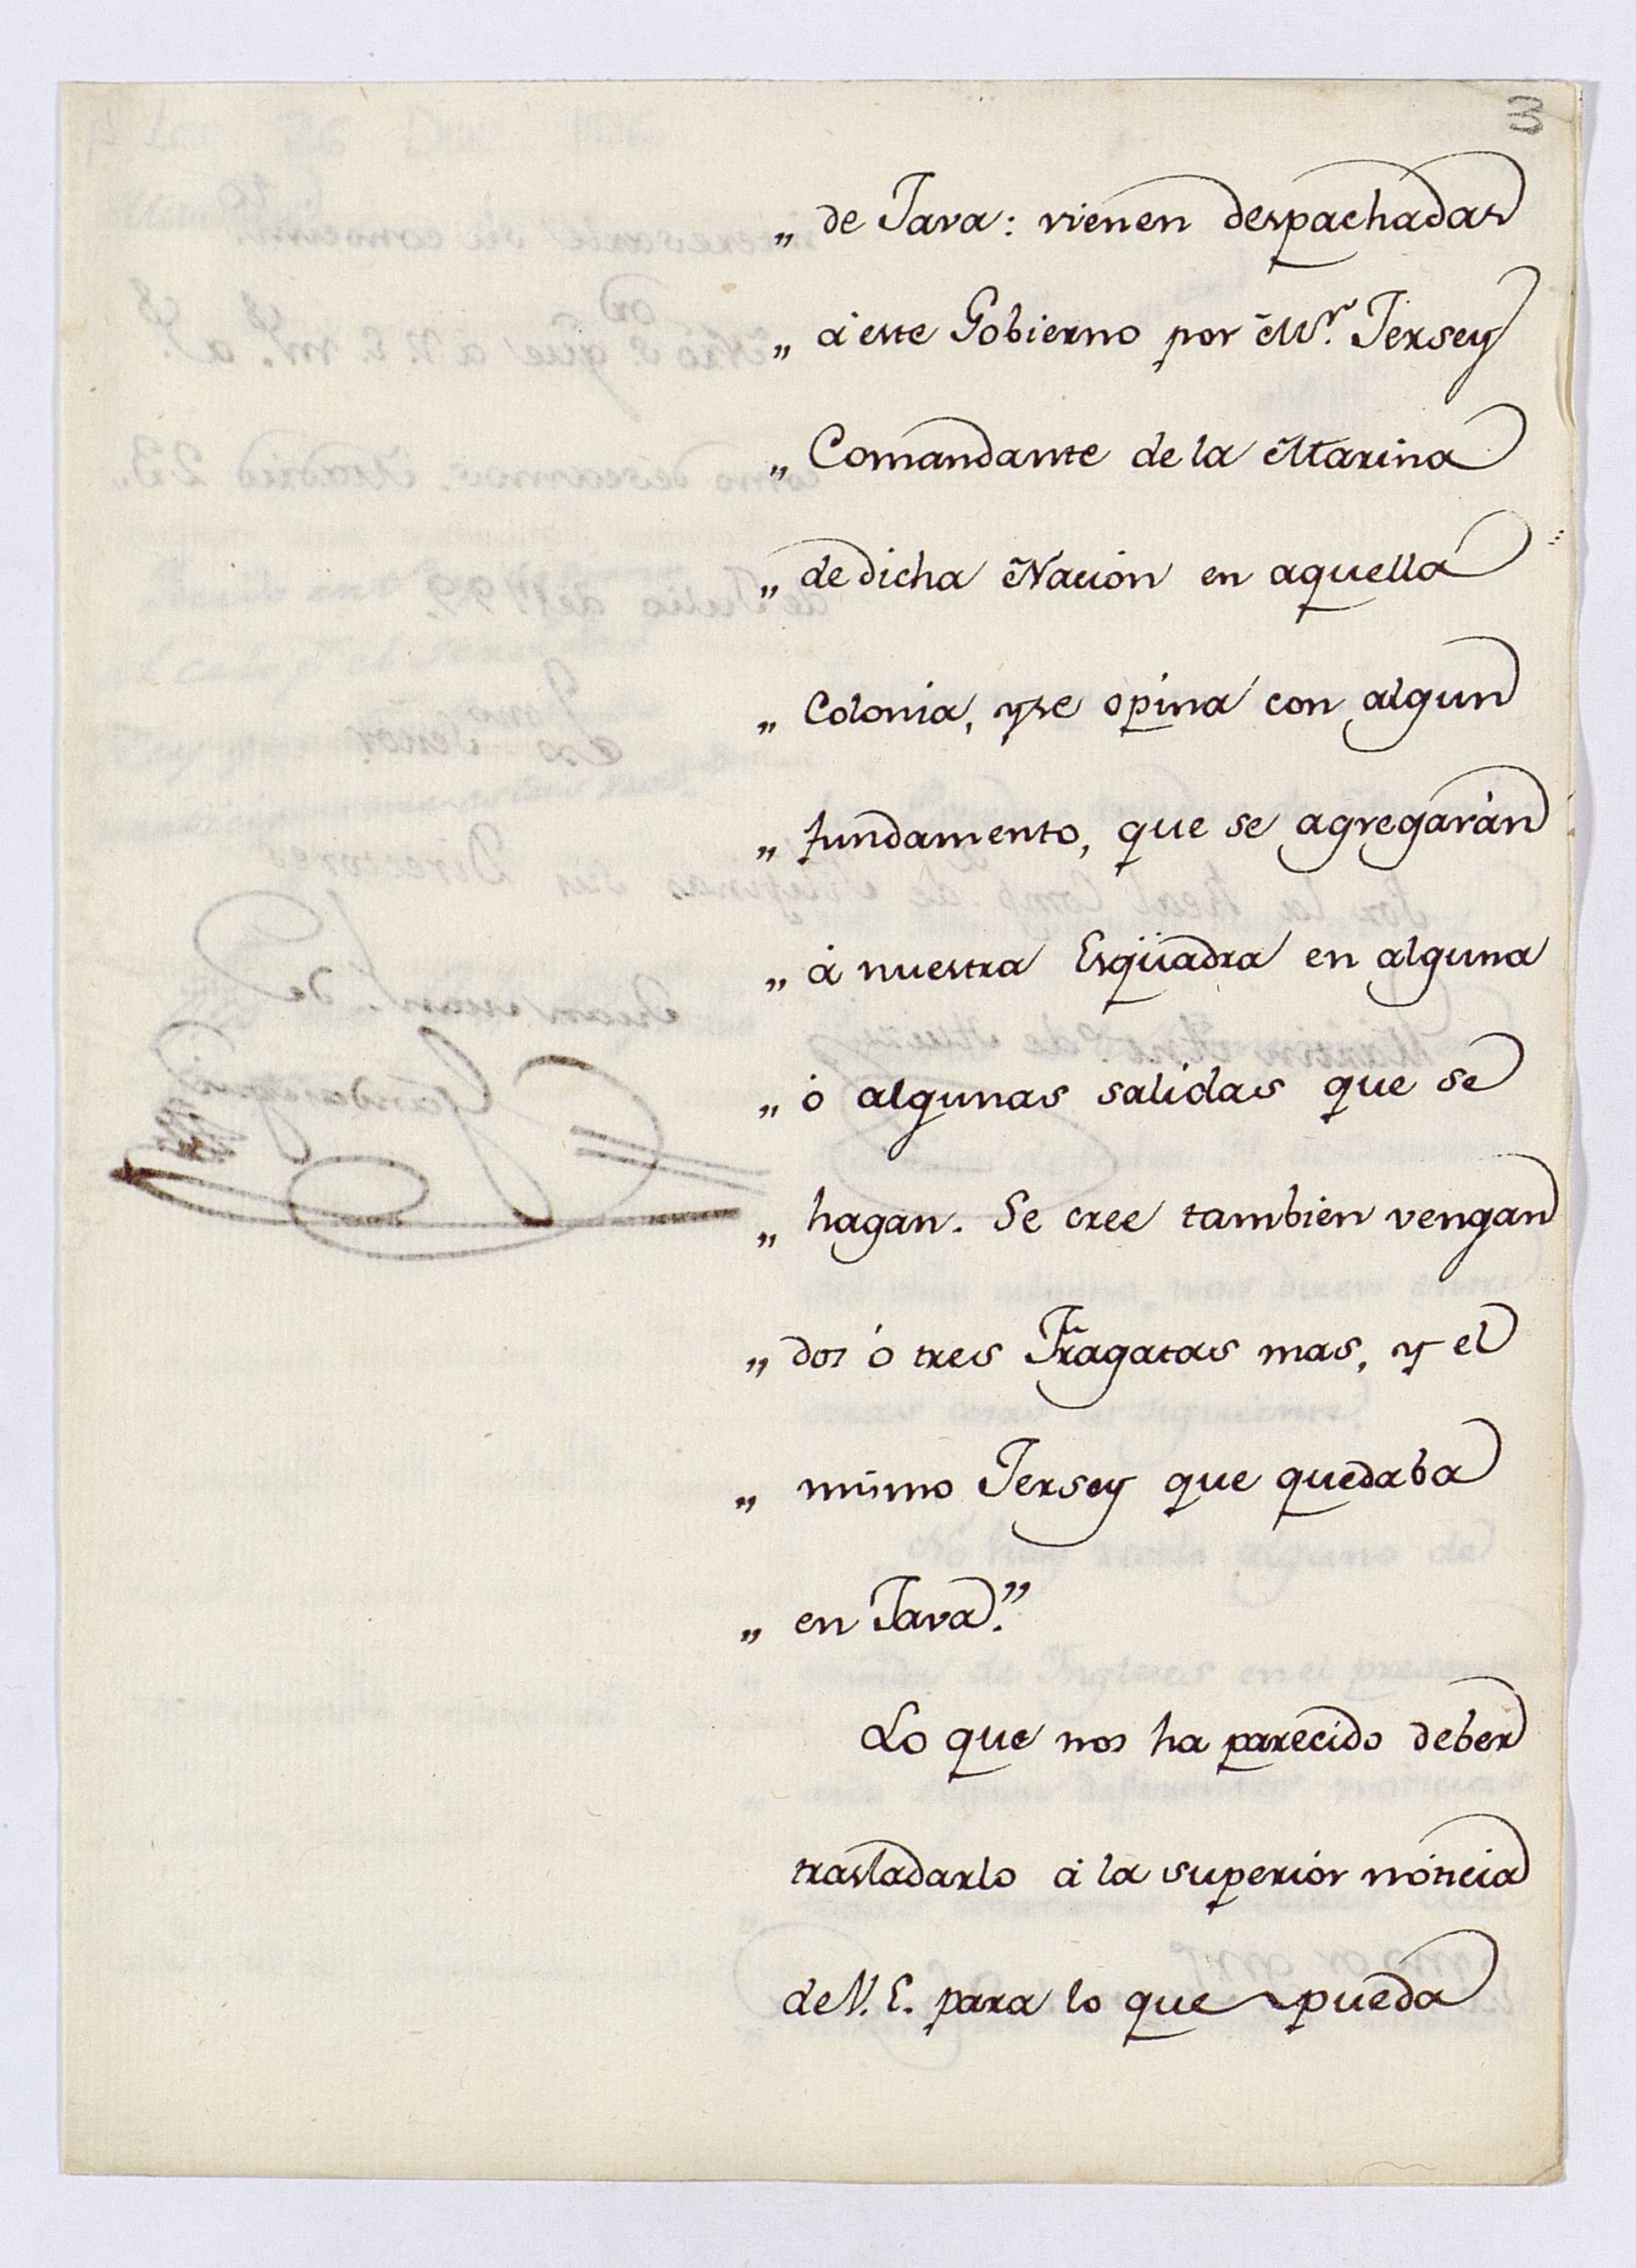 3
„ de Java: vienen despachadas
„ á este Gobierno por Mr. Jersey
„ Comandante de la Marina
„ de dicha Nacion en aquella
„ Colonia, y se opina con algun
„ fundamento, que se agregarán
„ á nuestra Esqüadra en alguna
„ ó algunas salidas que se
„ hagan. Se cree tambien vengan
„ dos ó tres Fragatas mas, y el
„ mismo Jersey que quedaba
„ en Java.”
Lo que nos ha parecido deber
trasladarlo á la superior noticia
de V. E. para lo que pueda